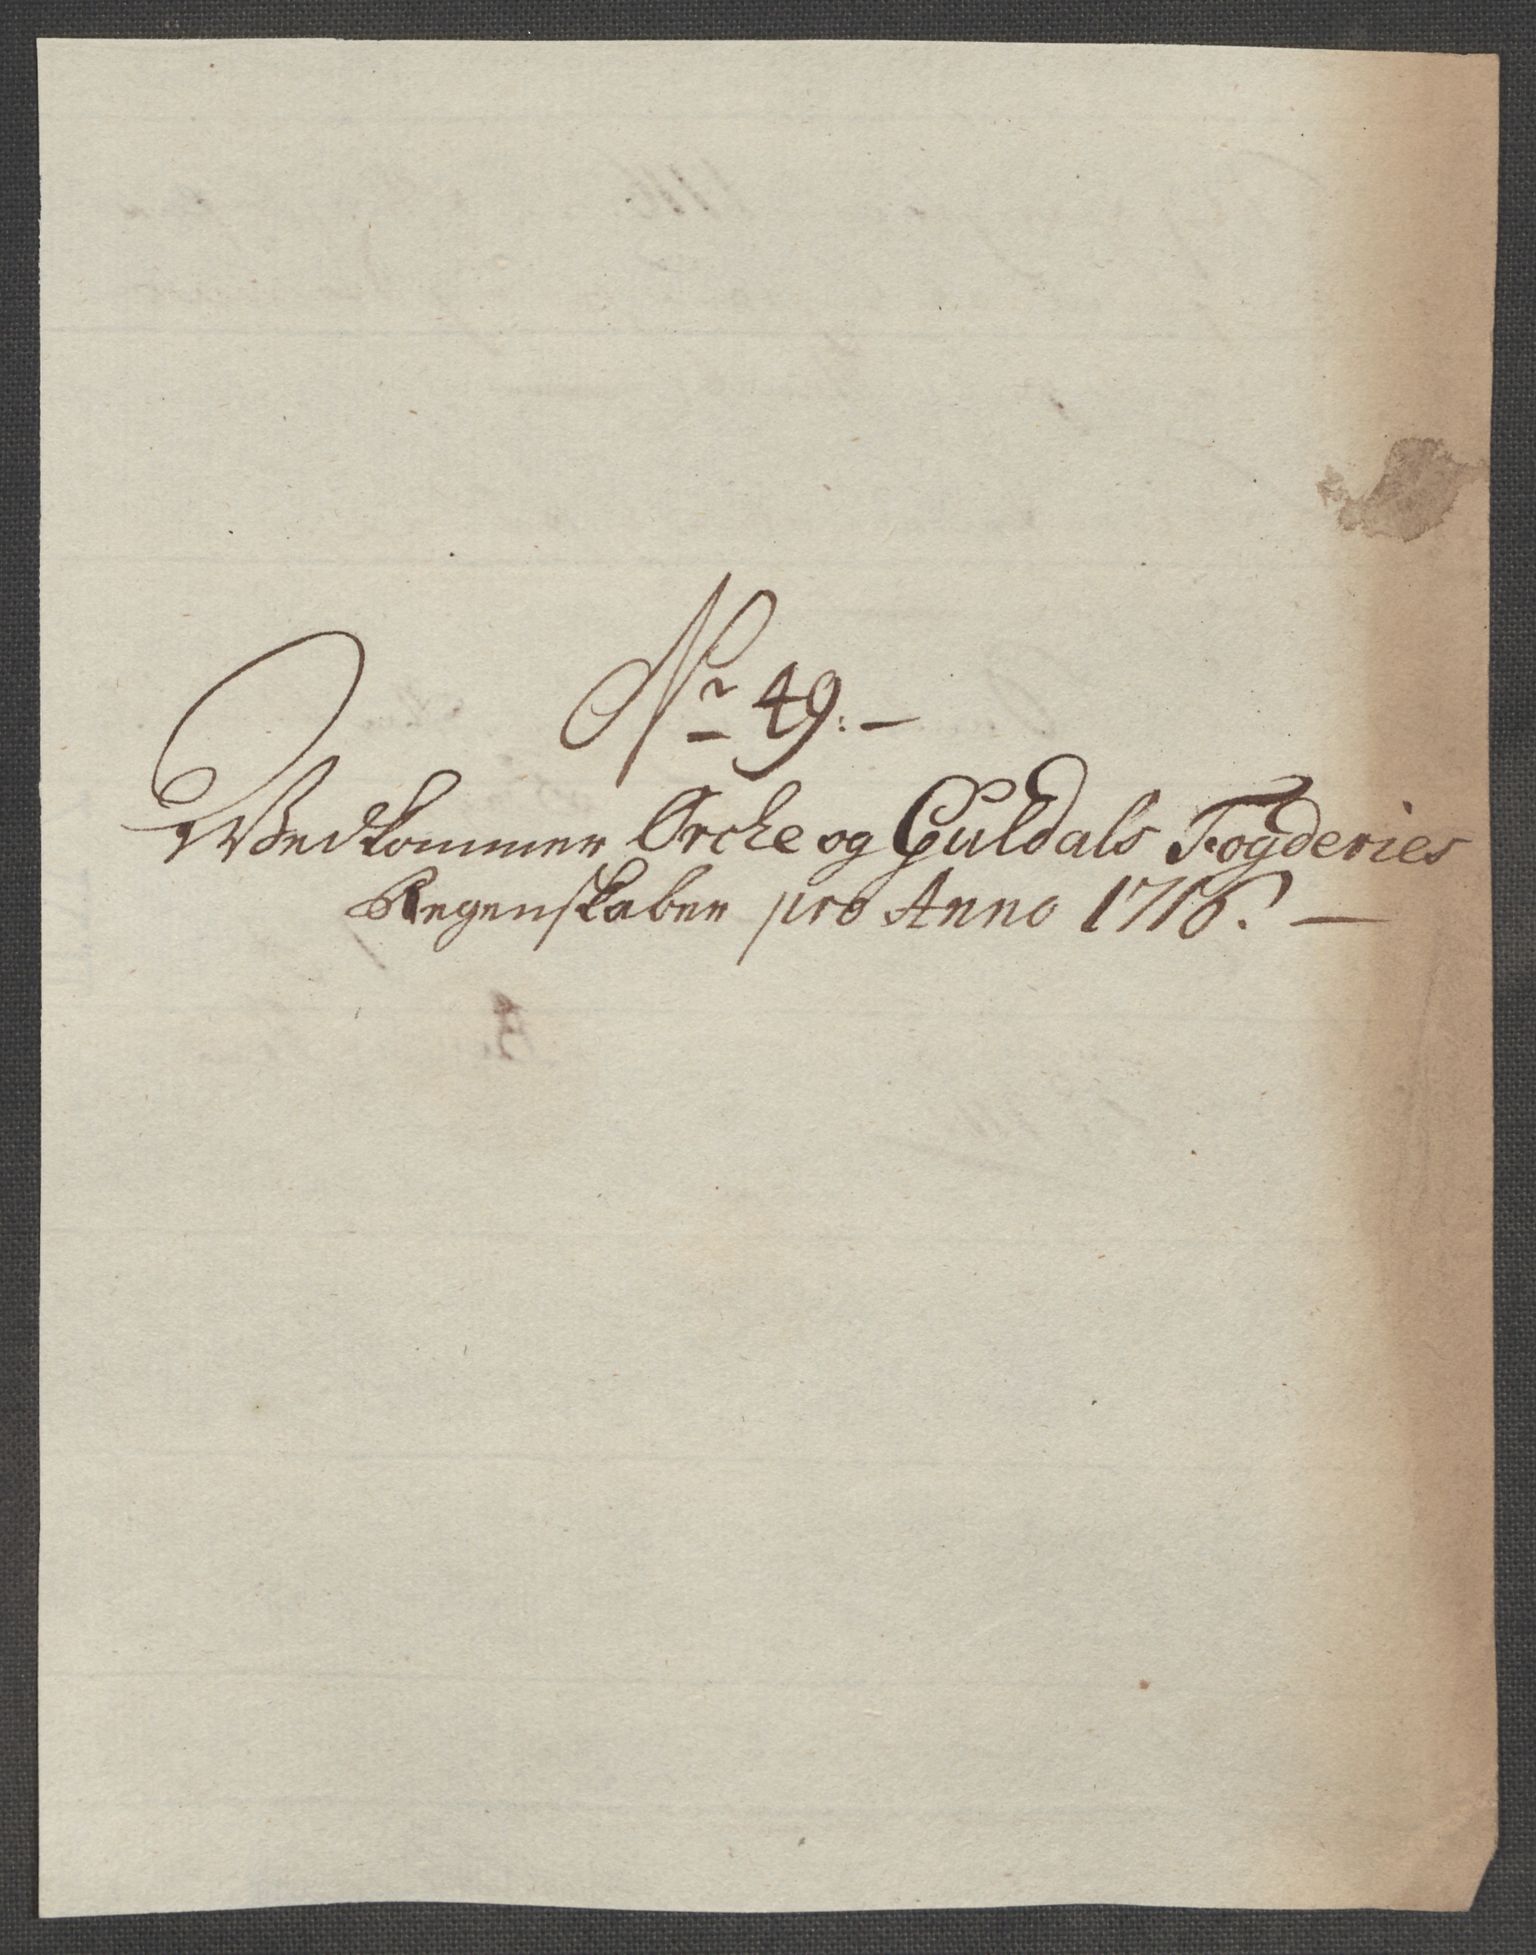 No 49. —
Wedkommer Orche og Guldals Fogderies
Regenskaber pro Anno 1716. —